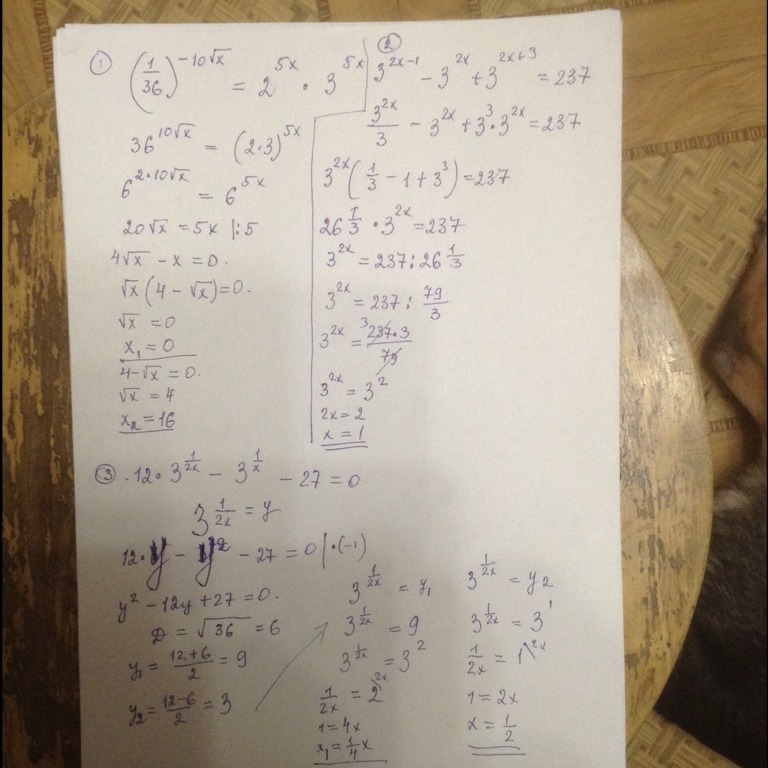 ① (1/36)^(-10√x) = 2^(5x) · 3^(5x)
36^(10√x) = (2·3)^(5x)
6^(2·10√x) = 6^(5x)
20√x = 5x |:5
4√x - x = 0.
√x (4 - √x) = 0.
√x = 0
x₁ = 0
4 - √x = 0.
√x = 4
x₂ = 16
② 3^(2x-1) - 3^(2x) + 3^(2x+3) = 237
3^(2x)/3 - 3^(2x) + 3^3 · 3^(2x) = 237
3^(2x) (1/3 - 1 + 3^3) = 237
26 1/3 · 3^(2x) = 237
3^(2x) = 237 : 26 1/3
3^(2x) = 237 : 79/3
3^(2x) = ³237·3/79
3^(2x) = 3^2
2x = 2
x = 1
③ .12 · 3^(1/2x) - 3^(1/x) - 27 = 0.
3^(1/2x) = y
12·y - y² - 27 = 0 |·(-1)
y² - 12y + 27 = 0.
D = √36 = 6
y₁ = (12+6)/2 = 9
y₂ = (12-6)/2 = 3
3^(1/2x) = y₁
3^(1/2x) = 9
3^(1/2x) = 3^2
1/2x = 2 \2x
1 = 4x
x₁ = 1/4 x
3^(1/2x) = y₂
3^(1/2x) = 3^1
1/2x = 1 \2x
1 = 2x
x = 1/2